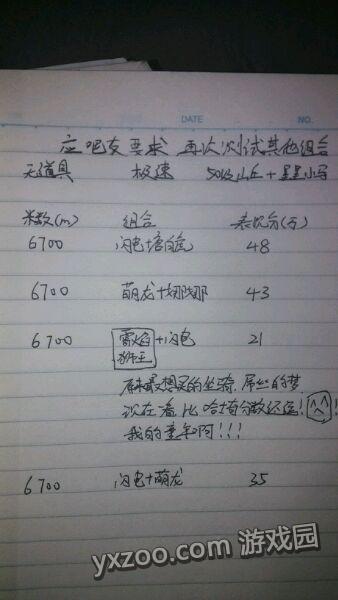 DATE NO.
应吧友要求 再次测试其他组合
无道具 极速 50级山丘+星星小马
米数(m) 组合 表现分(万)
6700 闪电+独角鹿 48
6700 萌龙+娜娜 43
6700 雷焰狮王+闪电 21
原来最想买的坐骑,屌丝的梦
现在看比哈士奇分数还逊!
我的童年啊!!!
6700 闪电+萌龙 35
yxzoo.com 游戏园